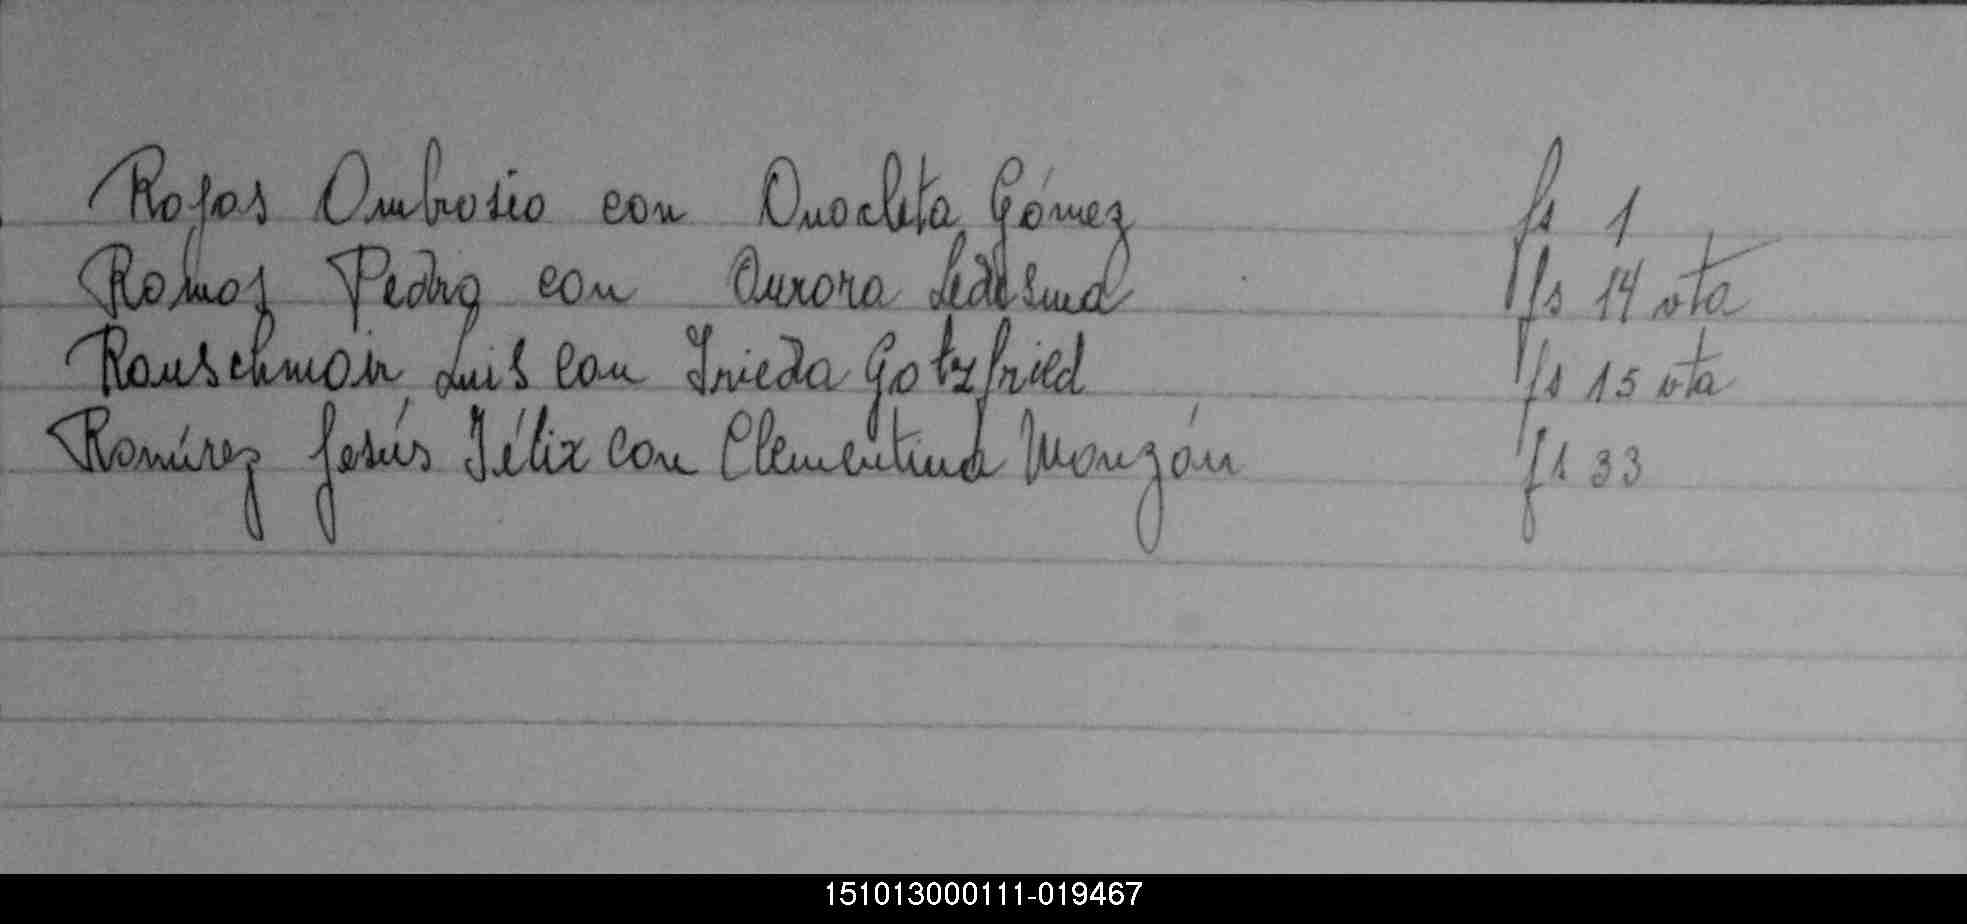 Rojas Ambrosio con Anacleta Gómez fs 1
Ramos Pedro con Aurora Ledesma fs 14 vta
Rauschmair Luis con Frieda Gotzfried fs 15 vta
Ramírez Jesús Félix con Clementina Monzón fs 33
151013000111-019467